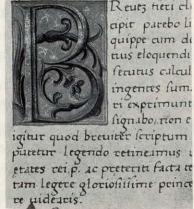 B Reueʒ fieri cu
apit parebo li
quippe cum di
tus eloquendi
secutus calcul
ingentes sum,
ri exprimunt
signabo. non e
igitur quod breuiter scriptum
paretur legendo retineamus
etates rei p. ac preteriti facta ce
tam legere gloriosissime prince
re uideatis.